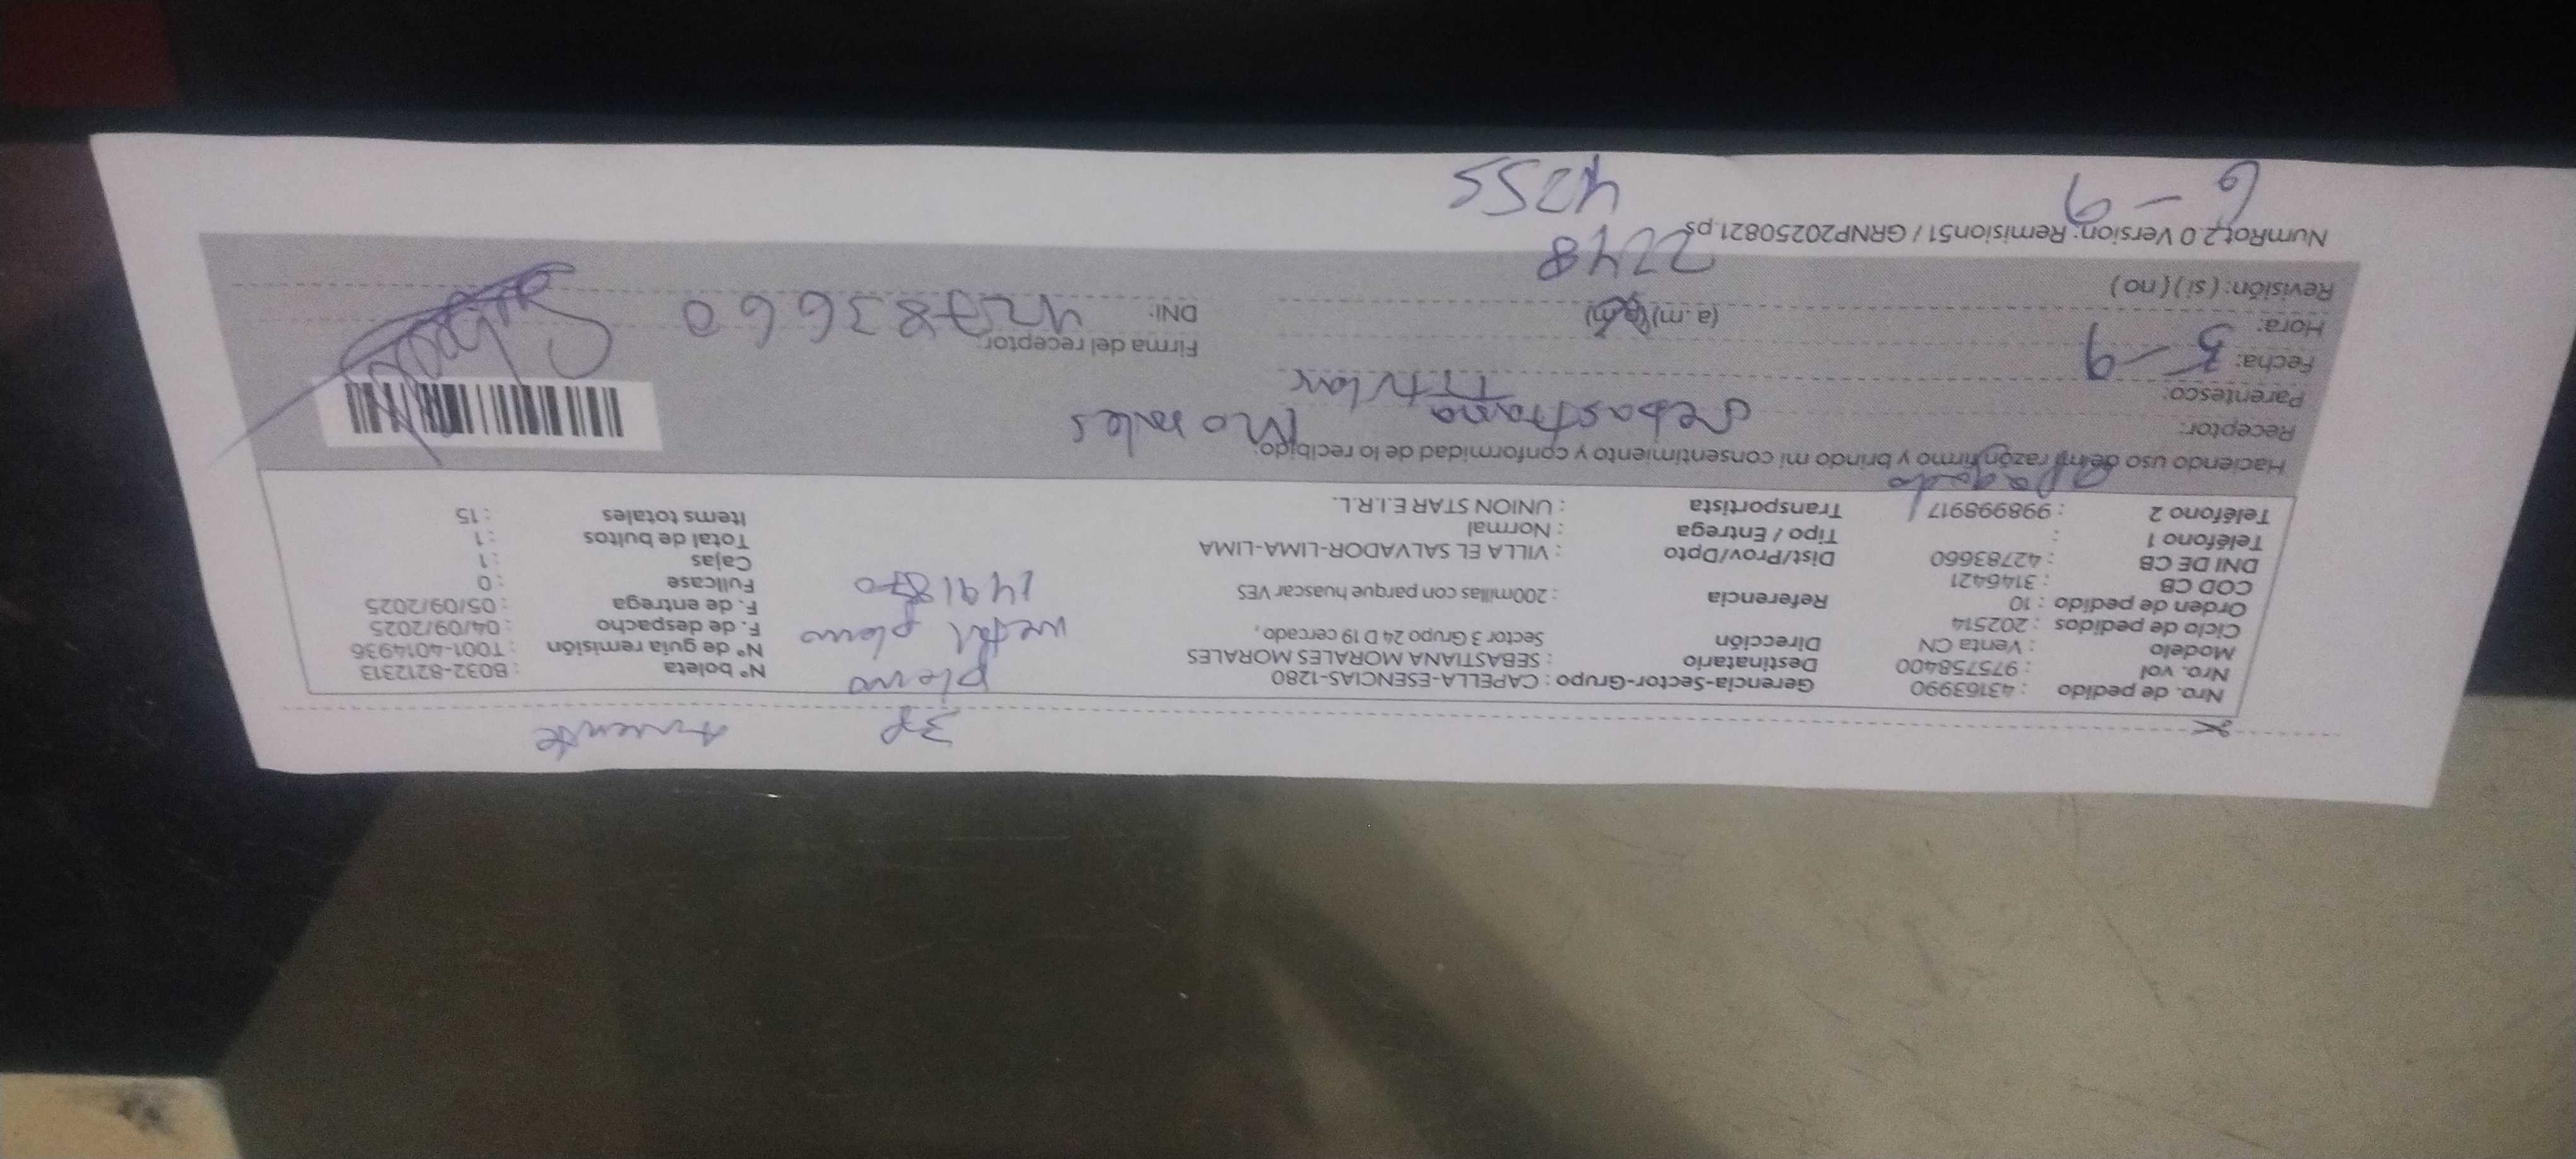 3P Ausente
Nro. de pedido : 43163990 Gerencia-Sector-Grupo : CAPELLA-ESENCIAS-1280 plomo Nº boleta : B032-8212313
Nro. vol : 975758400 Destinatario : SEBASTIANA MORALES MORALES Nº de guía remisión : T001-4014936
Modelo : Venta CN Dirección Sector 3 Grupo 24 D 19 cercado, metal plomo F. de despacho : 04/09/2025
Ciclo de pedidos : 202514 F. de entrega : 05/09/2025
Orden de pedido : 10 Referencia : 200millas con parque huascar VES 1491870 Fullcase : 0
COD CB : 3146421 Cajas : 1
DNI DE CB : 42783660 Dist/Prov/Dpto : VILLA EL SALVADOR-LIMA-LIMA Total de bultos : 1
Teléfono 1 : Tipo / Entrega : Normal Items totales : 15
Teléfono 2 : 998998917 / apagado Transportista : UNION STAR E.I.R.L.
Haciendo uso de mi razón firmo y brindo mi consentimiento y conformidad de lo recibido:
Receptor: Sebastiana Morales
Parentesco: Titular
Fecha: 5-9 Firma del receptor:
Hora: (a.m) (p.m) DNI: 42783660
Revisión: (si) (no) 2248
NumRot.2.0 Version: Remision51 / GRNP20250821.ps
6-9 4255